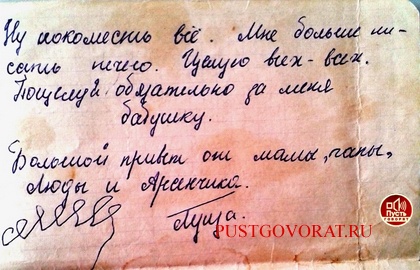 Ну покаместь всё. Мне больше пи-
сать нечего. Целую всех-всех.
Поцелуй обязательно за меня
бабушку.
Большой привет от мамы, папы,
Люды и Арсенчика.
Пуща.
PUSTGOVORAT.RU
Пусть
говорят